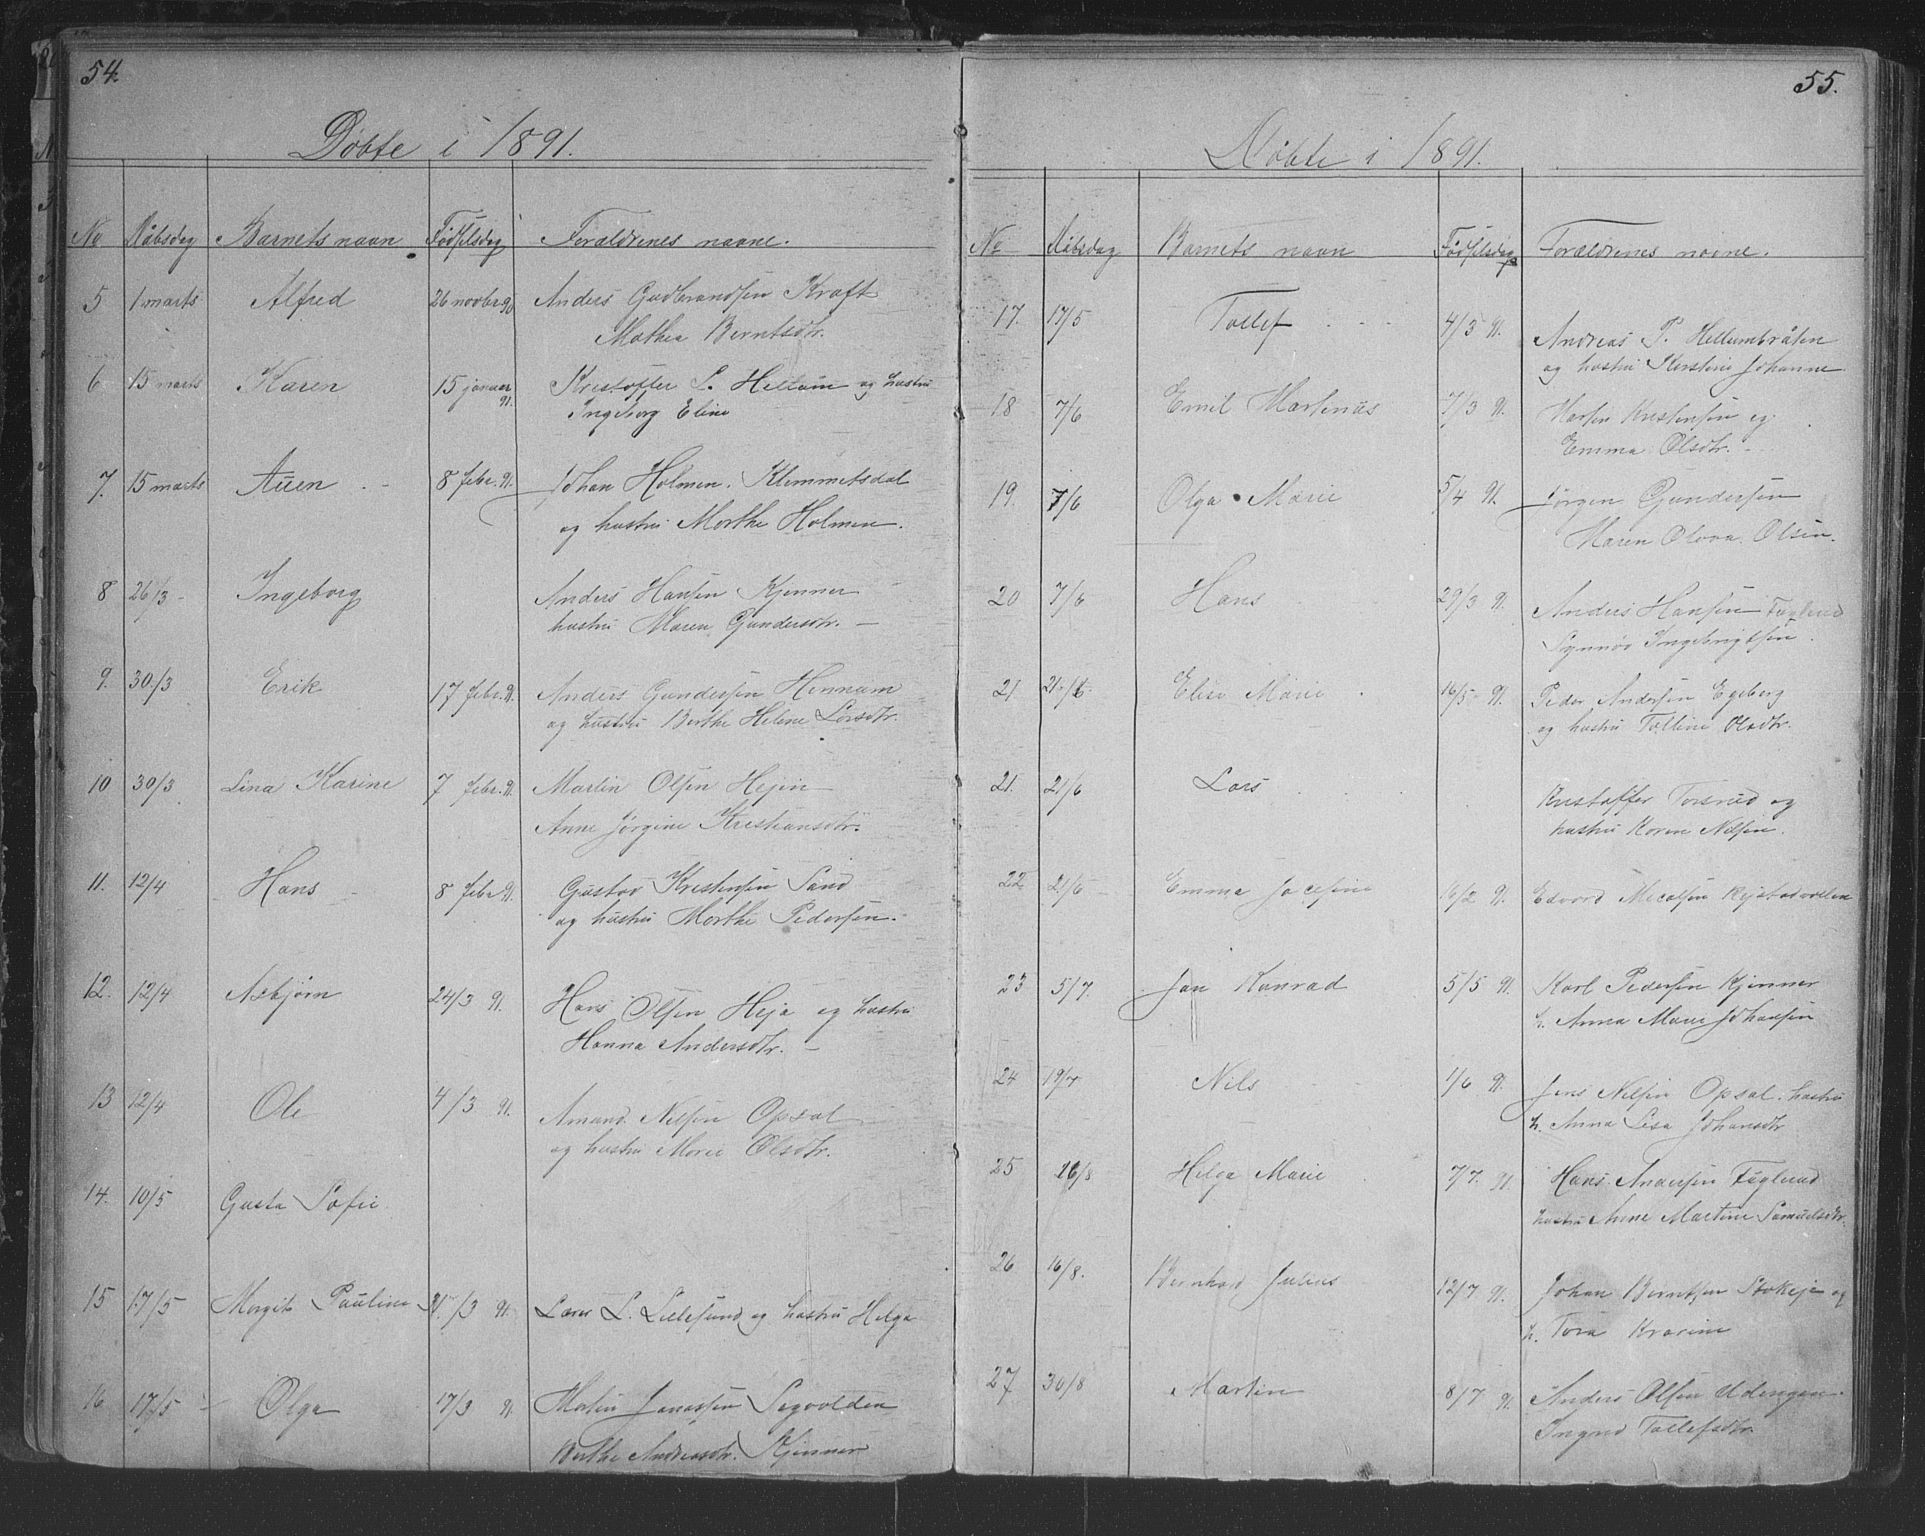 54.
Døbte i 1891.
No Dåbsdag Barnets navn Fødselsdag Forældrenes navne.
5 1 marts Alfred 26 novbr. 90 Anders Gudbrandsen Kraft
Mathea Berntsdtr.
6 15 marts Karen 15 januar 91. Kristoffer L. Hellum og hustru
Ingeborg Eline
7. 15 marts 8 febr. 91. Johan Holmen. Klemmetsdal
og hustru Marthe Holmen.
8 26/3 Ingeborg Anders Hansen Kjenner
hustru Maren Gundersdtr.
9. 30/3 Erik 17 febr. 91. Anders Gundersen Hennum
og hustru Berthe Helene Larsdtr.
10 30/3 Lina Karine 7 febr. 91. Martin Olsen Hejen
Anne Jørgine Kristiansdtr.
11. 12/4 Hans 8 febr 91. Gustav Kristensen Sand
og hustru Marthe Pedersen.
12. 12/4 Asbjørn 24/3 91. Hans Olsen Heja og hustru
Hanna Andersdtr.
13 12/4 Ole 4/3 91. Amund Nilsen Opsal
og hustru Marie Olsdtr.
14. 10/5 Gusta Sofie
15 17/5 Margit Pauline 31/3 91. Lars L. Lillesund og hustru Helga
16 17/5 Olga 17/3 91. Martin Jonassen Sagvolden
Berthe Andreasdtr. Kjenner
55.
Døbte i 1891.
No Dåbsdag Barnets navn Fødselsdag Forældrenes navne.
17. 17/5 Tollef 4/3 91. Andreas P. Hellumbråten
og hustru Kirstine Johanne
18 7/6 Emil Martinus 7/3 91. Martin Kristensen og
Emma Olsdtr.
19. 7/6 Olga Marie 5/4 91. Jørgen Gundersen
Maren Olava Olsen.
20 7/6 Hans 29/3 91. Anders Hansen Fuglerud
Synnøv Ingebrigtsen.
21. 21/6 Elise Marie 16/5 91. Peder Andersen Egeberg
og hustru Tolline Olsdtr.
21. 21/6 Lars Kristoffer Torsrud og
hustru Karen Nilsen.
22 21/6 Emma Josefine 16/2 91. Edvard Micalsen
23 5/7. Jan Konrad 5/5 91. Karl Pedersen Kjenner
h. Anna Marie Johansen
24 19/7 Nils 1/6 91. Jens Nilsen Opsal. hustru
h. Anna Lisa Johansdtr
25 16/8 Helga Marie 7/7. 91. Hans Andersen Fuglerud
hustru Anne Martine Samuelsdtr.
26 16/8. Bernhard Julius 12/7 91. Johan Berntsen Stokeje og
h. Tora Kravine
27 30/8 Martin 8/7 91. Anders Olsen Udengen.
Ingrid Tollefsdtr.